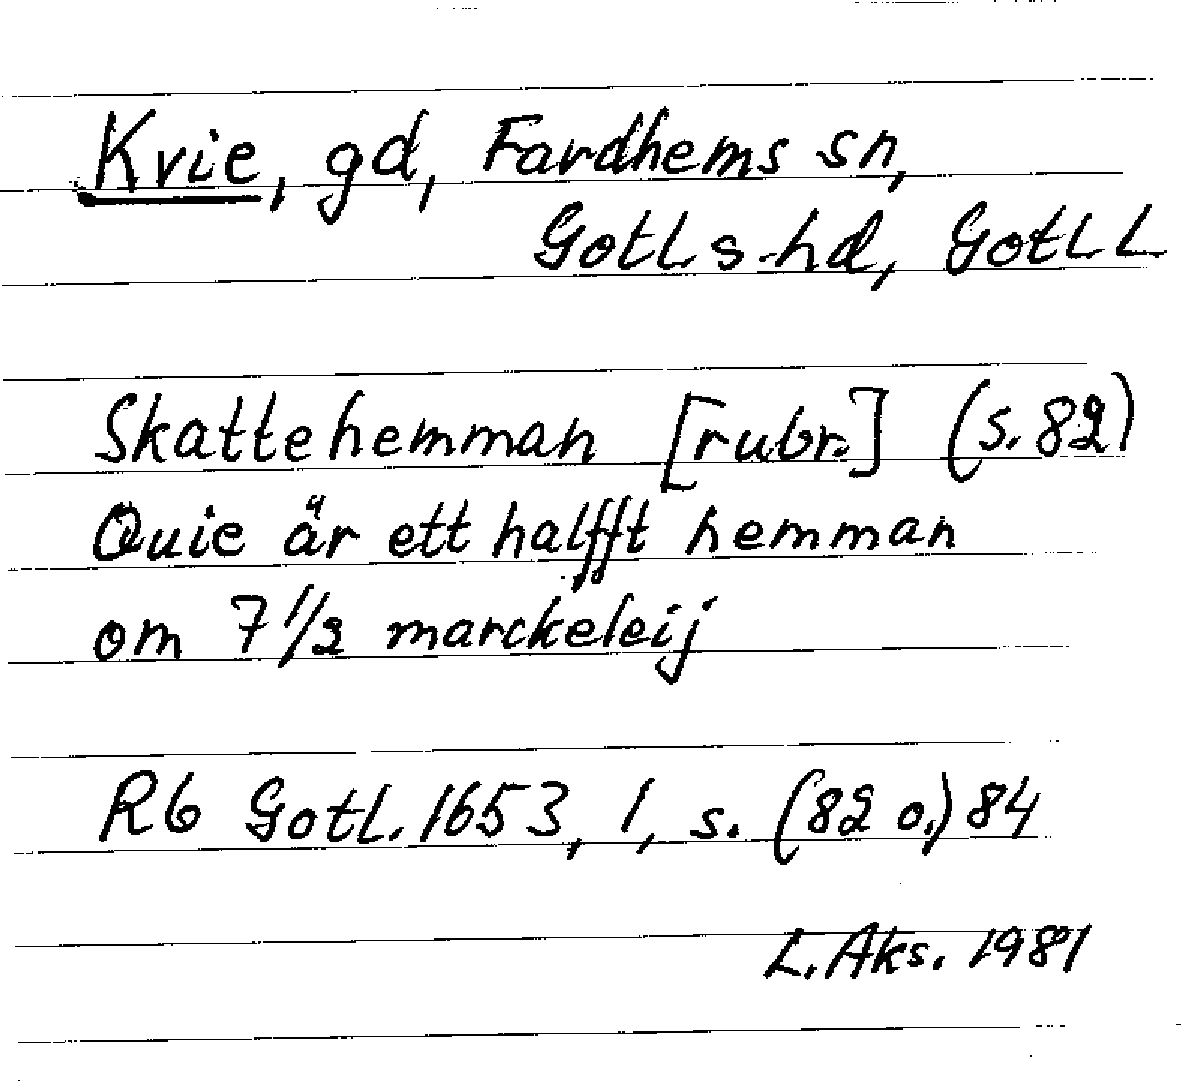 Kvie, gd, Fardhems sn,
Gotl. s. hd, Gotl. L
Skattehemman [rubr.] (s. 82)
Quie är ett halfft hemman
om 7 1/2 marckeleij
Rb Gotl. 1653, 1, s. (82 o.) 84
L. Aks. 1981